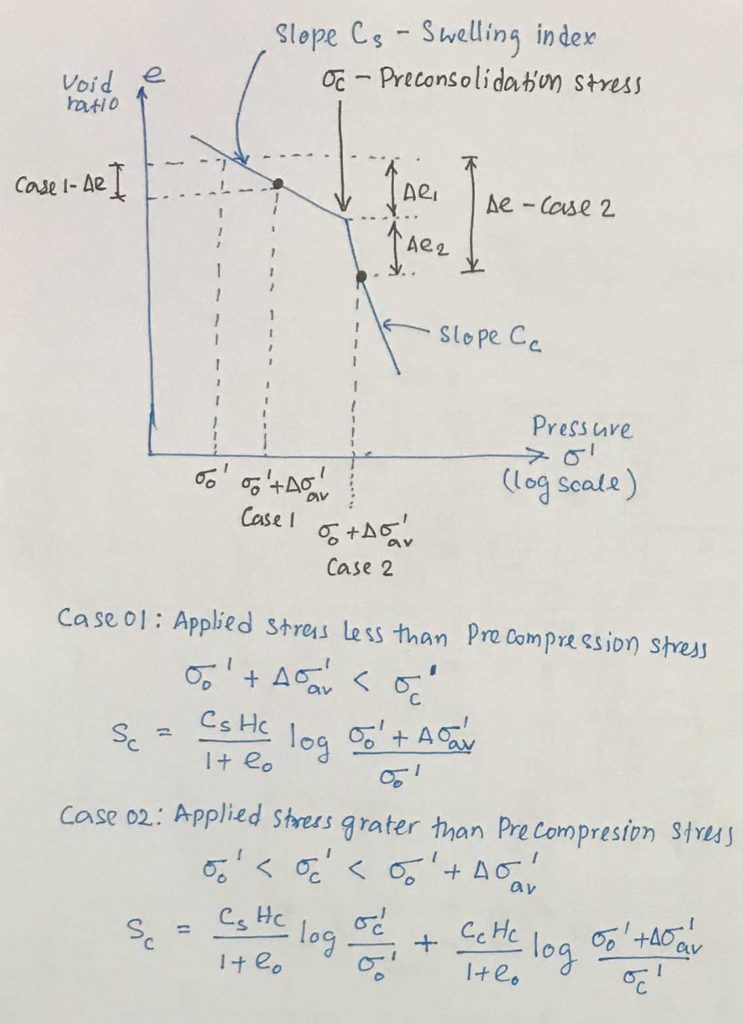 Slope Cs - Swelling index
σc - Preconsolidation stress
Void e
ratio
Case 1-Δe
Δe1
Δe - Case 2
Δe2
Slope Cc
Pressure
σ'
(log scale)
σo'
σo'+Δσ'av
Case 1
σo+Δσ'av
Case 2
Case 01: Applied stress less than Precompression stress
σo' + Δσ'av < σc'
Sc = CsHc/1+eo log σo'+Δσ'av/σo'
Case 02: Applied stress grater than Precompresion stress
σo' < σc' < σo' + Δσ'av
Sc = CsHc/1+eo log σc'/σo' + CcHc/1+eo log σo'+Δσ'av/σc'